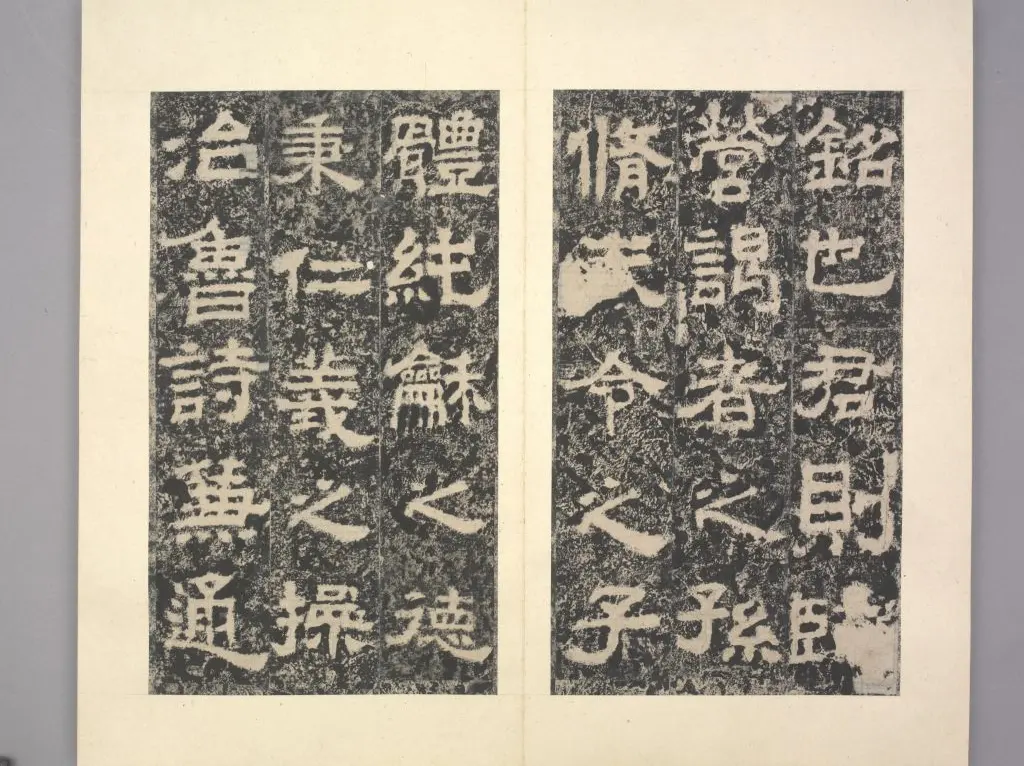 銘也君則
營謁者之孫
脩令之子
體純龢之德
秉仁義之操
治魯詩兼通